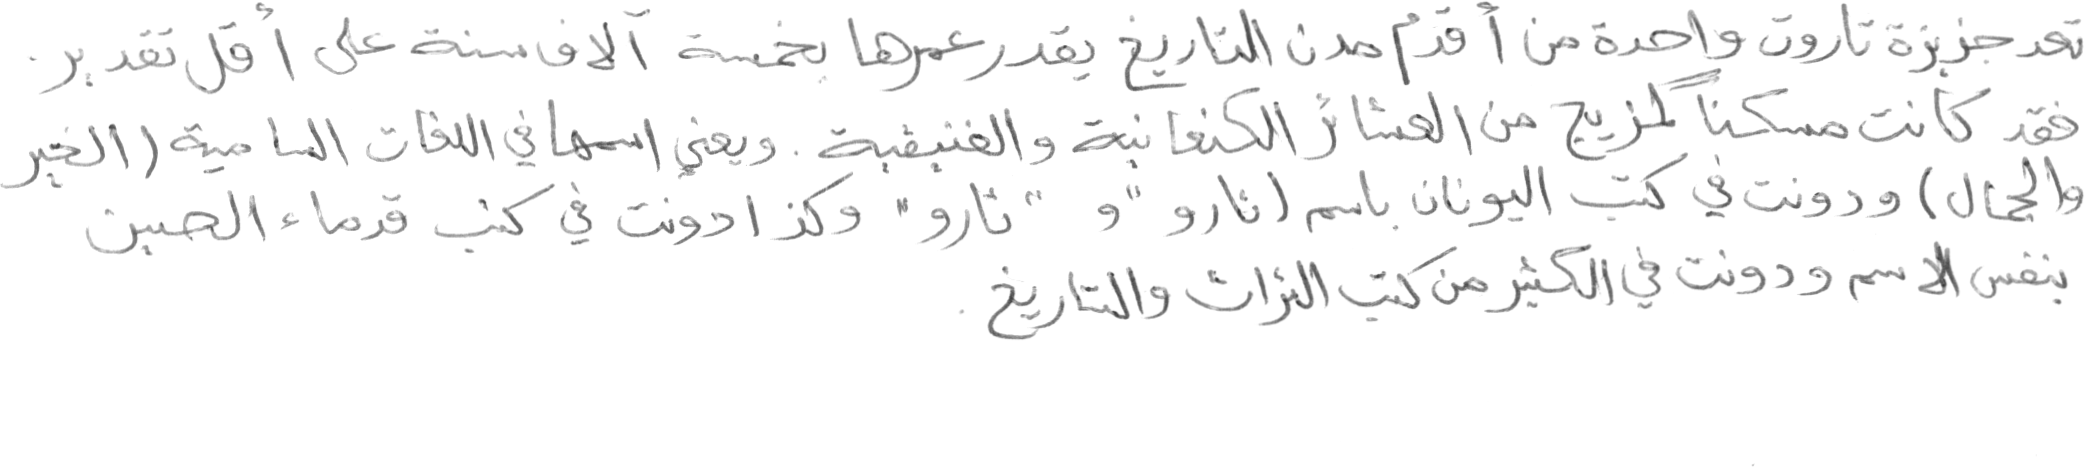 تعد جزيزة تاروت واحدة من أقدم مدن التاريخ يقدر عمرها بخمسة آلاف سنة على أقل تقدير.
فقد كانت مسكناً لمزيج من العشائر الكنعانية والفنيقية. ويعني اسمها في اللغات السامية (الخير
والجمال) ودونت في كتب اليونان باسم (تارو "و" تارو" وكذا دونت في كتب قدماء الصين
بنفس الاسم ودونت في الكثير من كتب التراث والتاريخ.